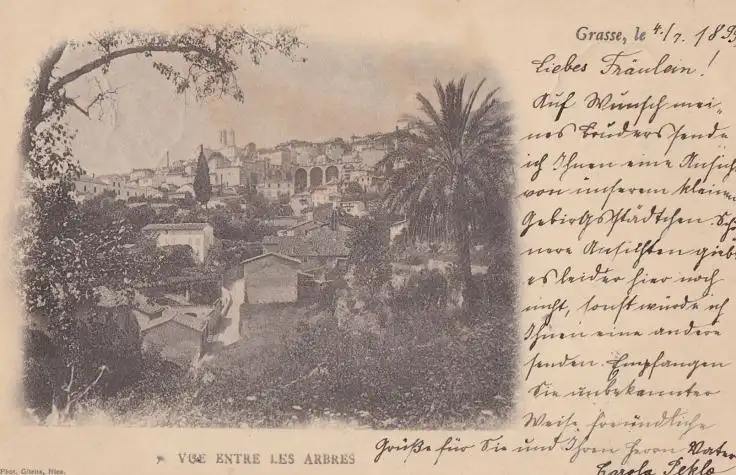 Grasse, le 4./7. 189
Liebes Fräulein!
Auf Wunsch mei-
nes Bruders sende
ich Ihnen eine Ansicht
von unserem kleinen
Gebirgsstädtchen. Schö
nere Ansichten giebt
es leider hier noch
nicht, sonst würde ich
Ihnen eine andere
senden. Empfangen
Sie unbekannter
Weise freundliche
Grüße für Sie und Ihren Herrn Vater
VUE ENTRE LES ARBRES
Phot. Giletta, Nice.